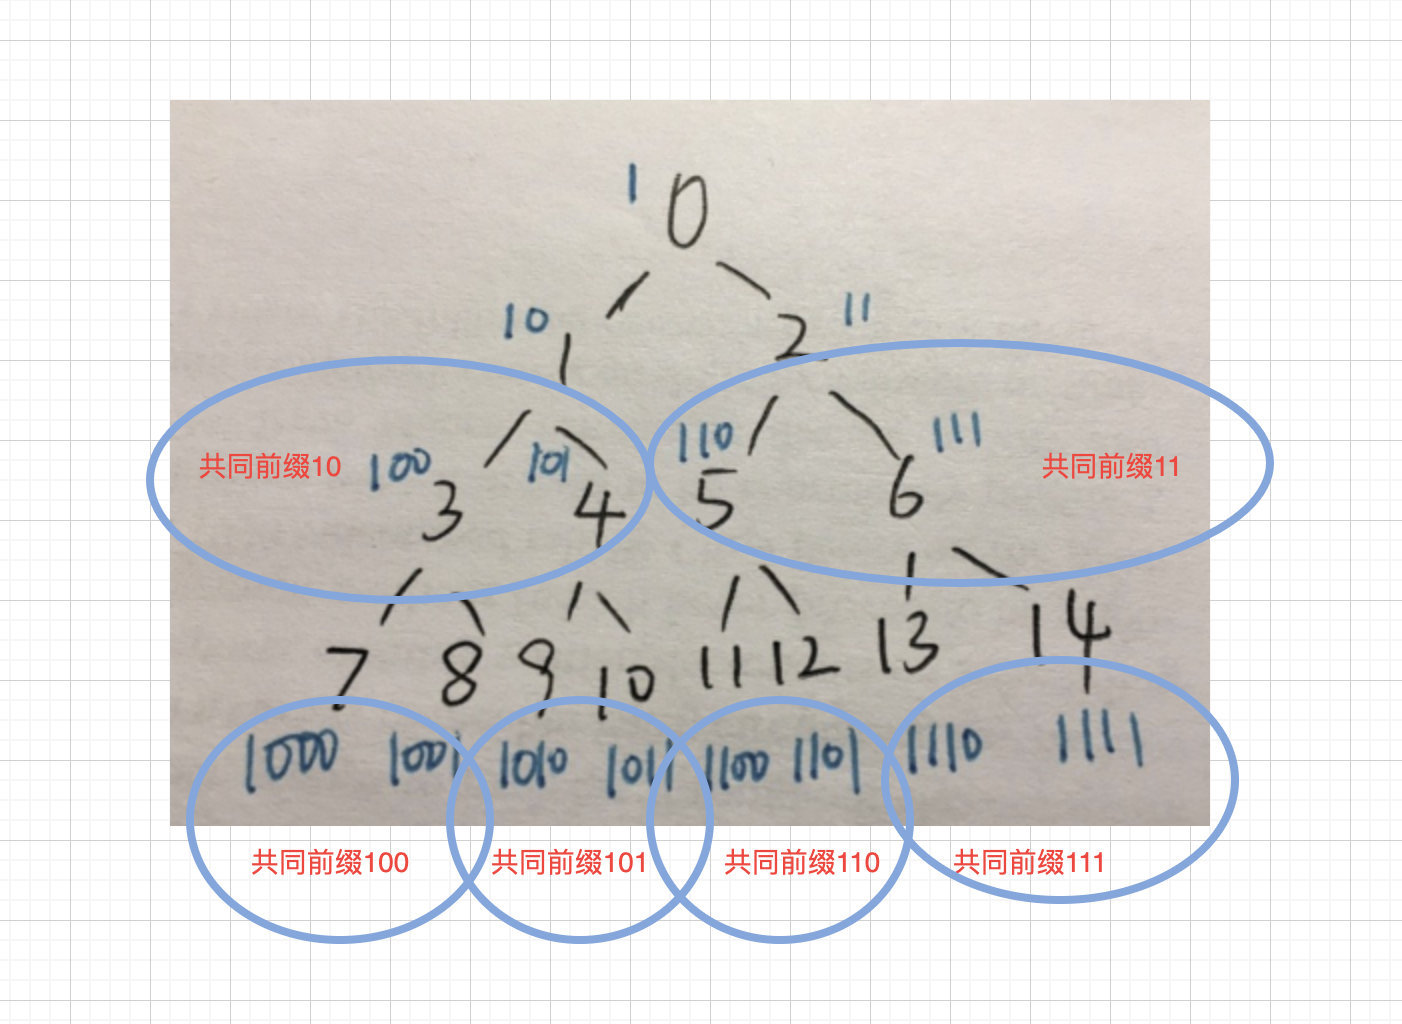 1 0
10 11
1 2
110 111
共同前缀10 100 101 共同前缀11
3 4 5 6
7 8 9 10 11 12 13 14
1000 1001 1010 1011 1100 1101 1110 1111
共同前缀100 共同前缀101 共同前缀110 共同前缀111